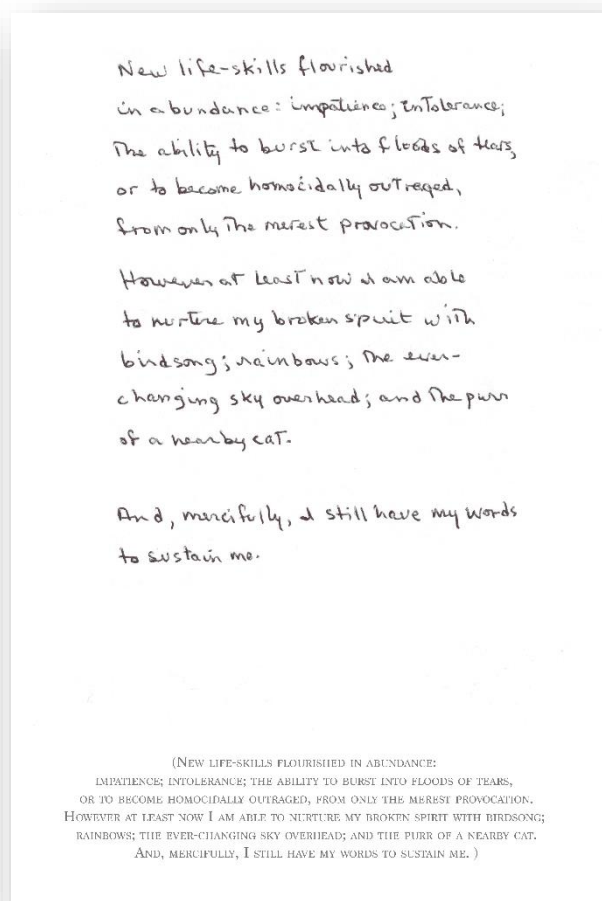 New life-skills flourished
in abundance: impatience; intolerance;
The ability to burst into floods of tears,
or to become homocidally outraged,
from only the merest provocation.
However at least now I am able
to nurture my broken spirit with
birdsong; rainbows; the ever-
changing sky overhead; and the purr
of a nearby cat.
And, mercifully, I still have my words
to sustain me.
(New life-skills flourished in abundance:
impatience; intolerance; the ability to burst into floods of tears,
or to become homocidally outraged, from only the merest provocation.
However at least now I am able to nurture my broken spirit with birdsong;
rainbows; the ever-changing sky overhead; and the purr of a nearby cat.
And, mercifully, I still have my words to sustain me. )